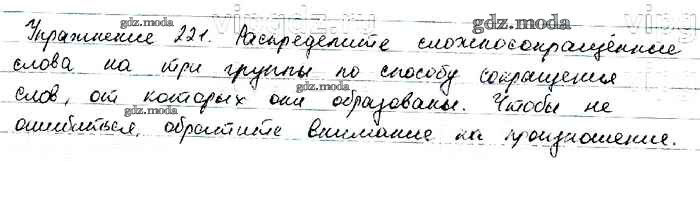 Упражнение 221. Распределите сложносокращённые
слова на три группы по способу сокращения
слов, от которых они образованы. Чтобы не
ошибиться, обратите внимание на произношение.
gdz.moda
gdz.moda
gdz.moda
gdz.moda
gdz.moda